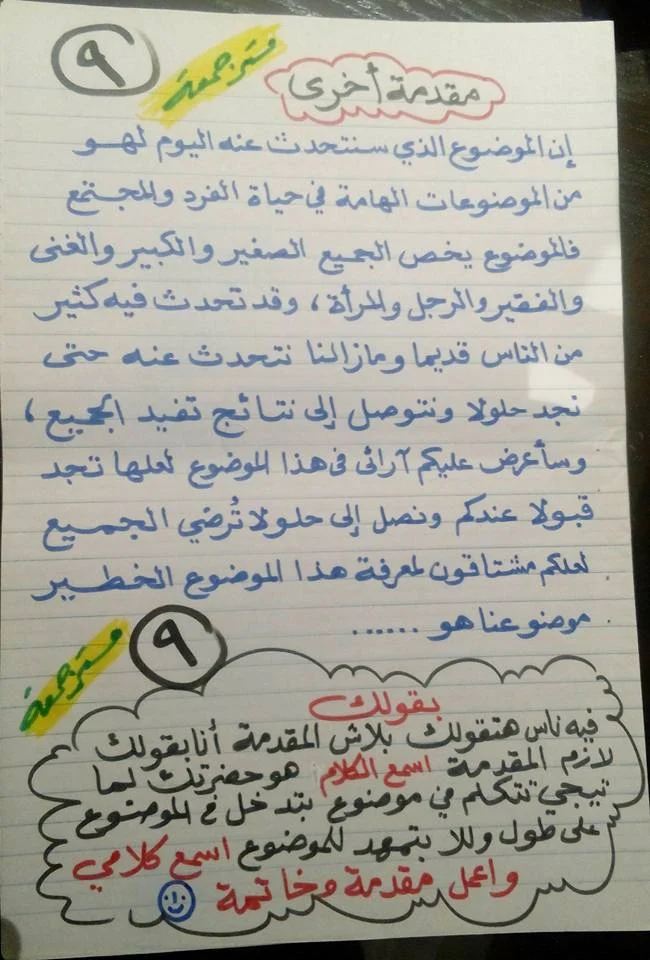 ٩
مستر جمعة
مقدمة أخرى
إن الموضوع الذي سنتحدث عنه اليوم لهو
من الموضوعات الهامة في حياة الفرد والمجتمع
فالموضوع يخص الجميع الصغير والكبير والغنى
والفقير والرجل والمرأة ، وقد تحدث فيه كثير
من الناس قديما ومازالنا نتحدث عنه حتى
نجد حلولا ونتوصل إلى نتائج تفيد الجميع ،
وسأعرض عليكم آرائى فى هذا الموضوع لعلها تجد
قبولا عندكم ونصل إلى حلولا تُرضي الجميع
لعلكم مشتاقون لمعرفة هذا الموضوع الخطير
موضوعنا هو ......
٩
مستر جمعة
بقولك
فيه ناس هتقولك بلاش المقدمة أنا بقولك
لازم المقدمة اسمع الكلام هو حضرتك لما
تيجي تتكلم في موضوع بتدخل في الموضوع
على طول وللا بتمهد للموضوع اسمع كلامي
واعمل مقدمة وخاتمة